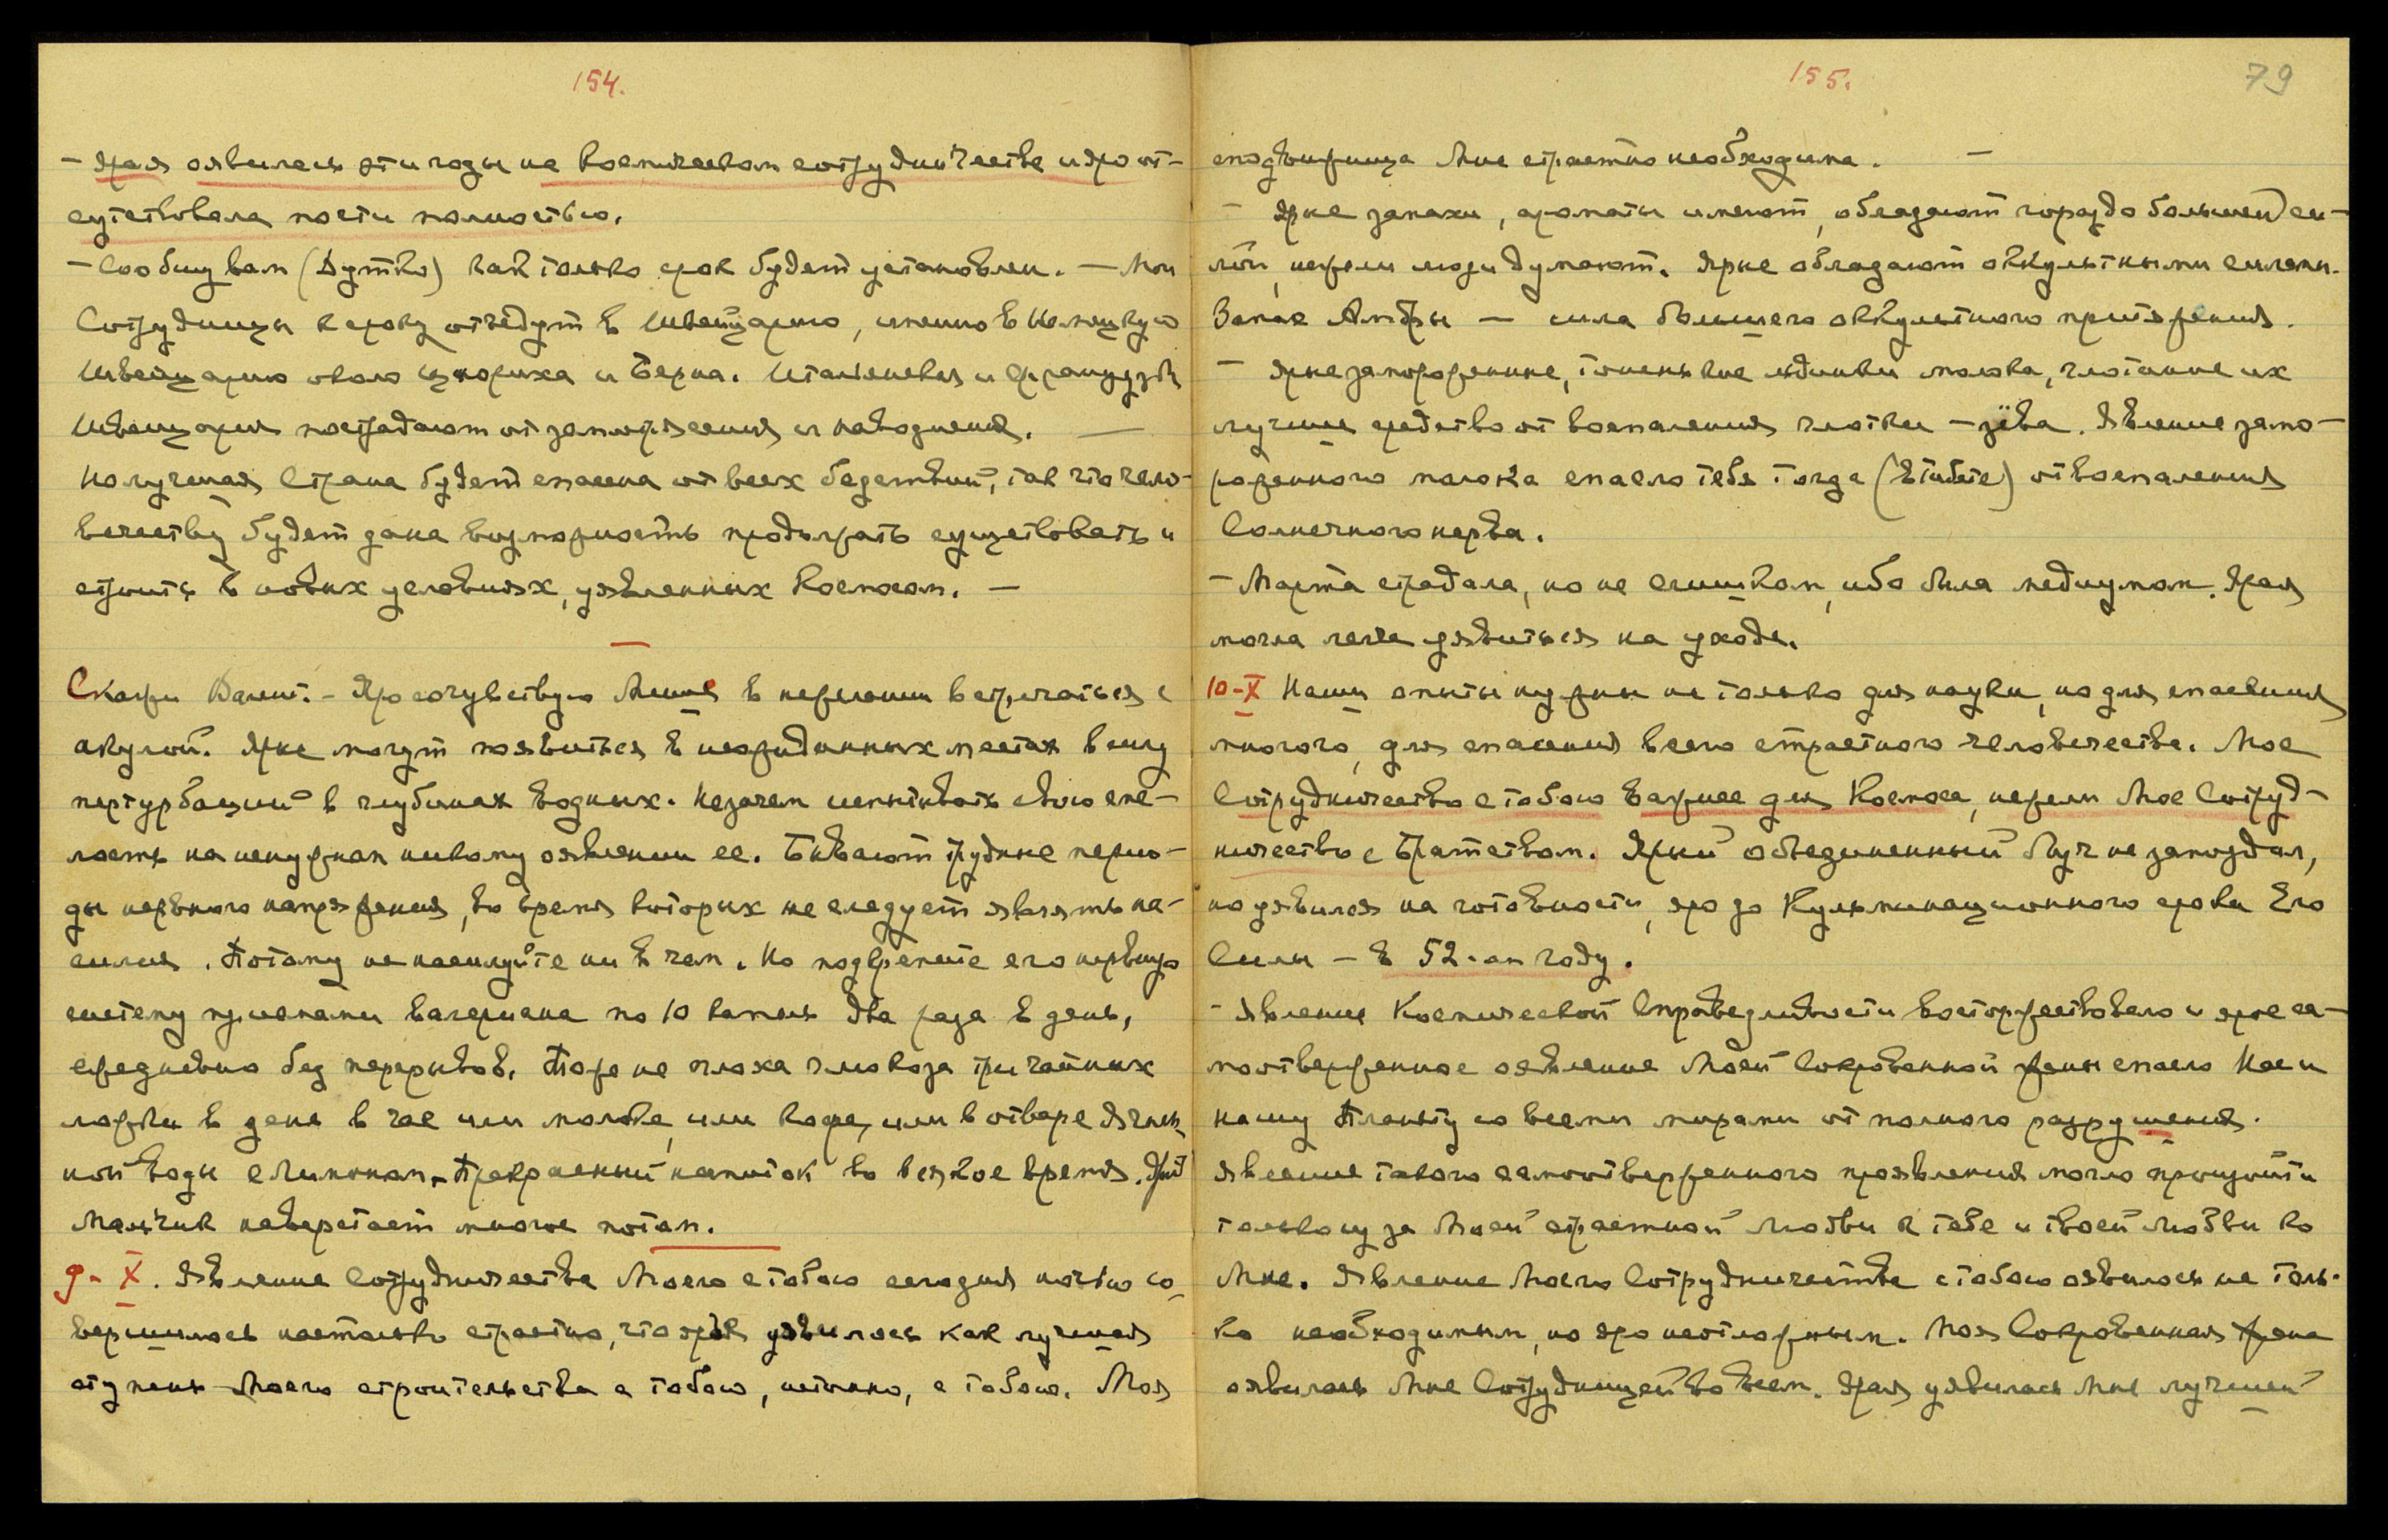 154.
- Ярая оявилась эти годы на космическом сотрудничестве и яро от-
сутствовала почти полностью.
- Сообщу вам (Дутко) как только срок будет установлен. — Мои
Сотрудницы к сроку отъедут в Швейцарию, именно в Немецкую
Швейцарию около Цюриха и Берна. Итальянская и Французск
Швейцария пострадают от землетрясения и наводнения. —
Но лучшая Страна будет спасена от всех бедствий, так что чело-
вечеству будет дана возможность продолжать существовать и
строить в новых условиях, уявленных Космосом. —
Скажи Валент. - Яро сочувствую Мише в нежелании встречаться с
акулой. Ярые могут появиться в неожиданных местах в силу
пертурбаций в глубинах водных. Незачем испытывать свою сме-
лость на ненужном никому оявлении ее. Бывают трудные перио-
ды нервного напряжения, во время которых не следует являть на-
силия. Потому не насилуйте ни в чем. Но подкрепите его нервную
систему приемами валериана по 10 капель два раза в день,
ежедневно без перерывов. Тоже не плоха глюкоза три чайных
ложки в день в чае или молоке, или кофе, или в отваре Ячмен
ной воды с Лимоном. Прекрасный напиток во всякое время. Ярый
Мальчик наверстает многое потом.
9 - X. Явление Сотрудничества Моего с тобою сегодня ночью со-
вершилось настолько страстно, что ярая уявилась как лучшая
ступень Моего строительства с тобою, истинно, с тобою. Моя
155.
79
сподвижница Мне страстно необходима. —
- Ярые запахи, ароматы имеют, обладают гораздо большей си-
лой, нежели люди думают. Ярые обладают оккультными силами.
Запах Амбры — сила большего оккультного притяжения.
- Ярые замороженные, тоненькие льдинки молока, глотание их
лучшее средство от воспаления глотки - зёва. Явление замо-
роженного молока спасло тебя тогда (в Тибете) от воспаления
Солнечного нерва.
- Марта страдала, но не слишком, ибо была медиумом. Ярая
могла легче уявиться на уходе.
10 - X Наши опыты нужны не только для науки, но для спасения
многого, для спасения всего страстного человечества. Мое
Сотрудничество с тобою важнее для Космоса, нежели Мое Сотруд-
ничество с Братством. Ярый объединенный Луч не запоздал,
но уявился на готовности, яро до Кульминационного срока Его
Силы - в 52.-ом году.
- Явление Космической Справедливости восторжествовало и ярое са-
моотверженное оявление Моей Сокровенной жены спасло Нас и
нашу Планету со всеми мирами от полного разрушения.
Явление такого самоотверженного проявления могло произойти
только из за Моей страстной Любви к тебе и твоей Любви ко
Мне. Явление Моего Сотрудничества с тобою оявилось не толь-
ко необходимым, но яро неотложным. Моя Сокровенная жена
оявилась Мне Сотрудницей во всем. Ярая уявилась Мне лучшей